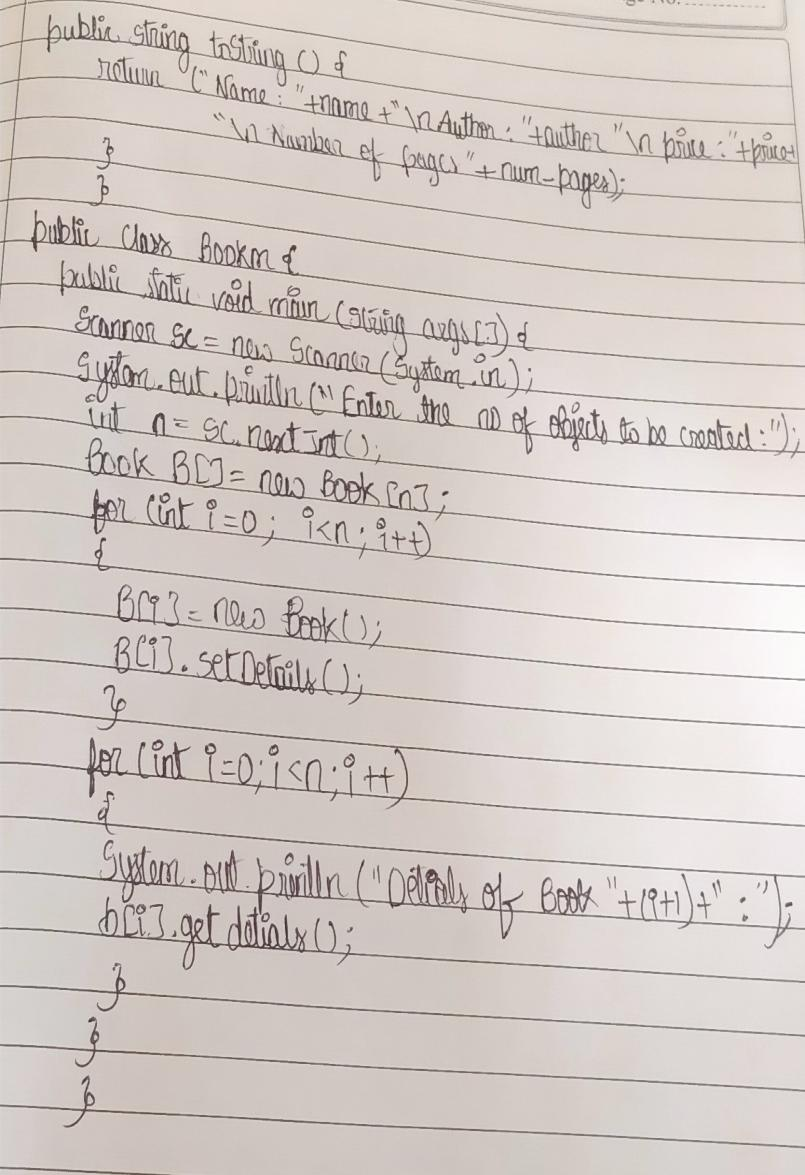 public string toString () {
return ("Name : "+name +"\n Author : "+author "\n price : "+price+
"\n Number of pages"+num-pages);
}
}
public class Bookm {
public static void main (string args[]) {
Scanner sc = new Scanner (System.in);
System.out.println ("Enter the no of objects to be created:");
int n = sc.nextInt();
Book B[] = new Book [n];
for (int i=0; i<n; i++)
{
B[i] = new Book();
B[i].setDetails();
}
for (int i=0; i<n; i++)
{
System.out.println ("Detials of Book "+(i+1)+" :");
b[i].get detials();
}
}
}